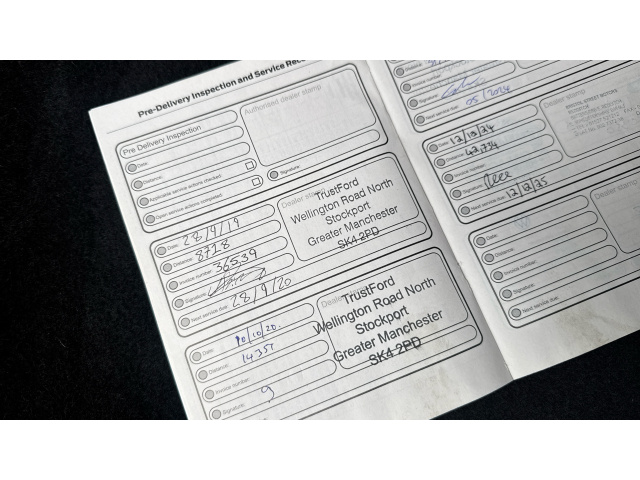 Pre-Delivery Inspection and Service Reco
Pre Delivery Inspection
Date:
Distance:
Applicable service actions checked:
Open service actions completed:
Authorised dealer stamp
Signature:
Date: 28/9/19
Distance: 8718
Invoice number: 36539
Signature:
Next service due: 28/9/20
Dealer stamp
TrustFord
Wellington Road North
Stockport
Greater Manchester
SK4 2PD
Date: 10/10/20.
Distance: 14351
Invoice number:
Signature:
Dealer
TrustFord
Wellington Road North
Stockport
Greater Manchester
SK4 2PD
Distance:
Invoice number:
Signature:
Next service due: 05/2024
Date: 12/10/24
Distance: 42,754
Invoice number:
Signature:
Next service due: 12/12/25
Dealer stamp
Date:
Distance:
Invoice number:
Signature:
Next service due:
Dealer stamp